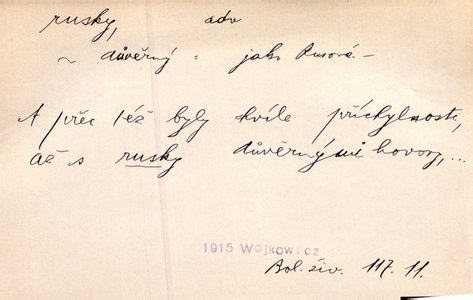 rusky, adv
~ důvěrný = jako Rusová –
A přec též byly chvíle přichylnosti,
Až s rusky důvěrnými hovory, ...
1915 Wojkowicz
Bol. živ. 117. 11.